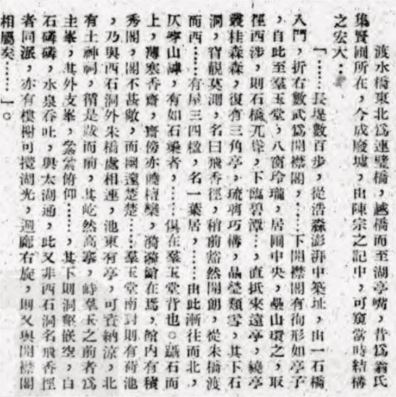 渡水橋東北爲連壁橋，越橋而至湖亭嘴，昔爲翁氏
集賢圃所在，今成廢墟，由陳宗之記中，可窺當時結構
之宏大…
「……長堤數百步，從浩淼澎湃中築址，由一石橋
入門，折右數武爲開襟閣，……下開襟閣有徇形如亭子
，自此至羣玉堂，八窗玲瓏，居圃中央，疊山環之，取
徑西涉，則石橋兀，下臨碧潭…，直抵來遠亭，繞亭
叢桂森森，復有三角亭，琉璃巧構，晶瑩類雪，其下石
洞，莫測，名曰飛香徑，稍前豁然開朗，從朱橋渡
而西……有屋三四楹，名一葉居，……由此漸往而北，
仄山罅，有如石巷者，……俱在羣玉堂背也。躡石而
上，薄寒香齋，齋傍亦饒，漪瀾館在焉，館內有積
秀閣，閣不甚敞，而幽遠楚楚……羣玉堂南對則有荷池
，乃與西石洞外朱橋處相連，池東有亭，可資納涼，北
有土神祠，循是而前，其屹然高，峙羣玉之前者爲
主峯，其外支峯，俯仰……，其下則洞壑嵌空，白
石磷磷，水泉吞吐，與太湖通，此又非西石洞名飛香徑
者同派，亦有樓榭可攬湖光，迴廊右旋，則又與開襟閣
相屬矣……」。